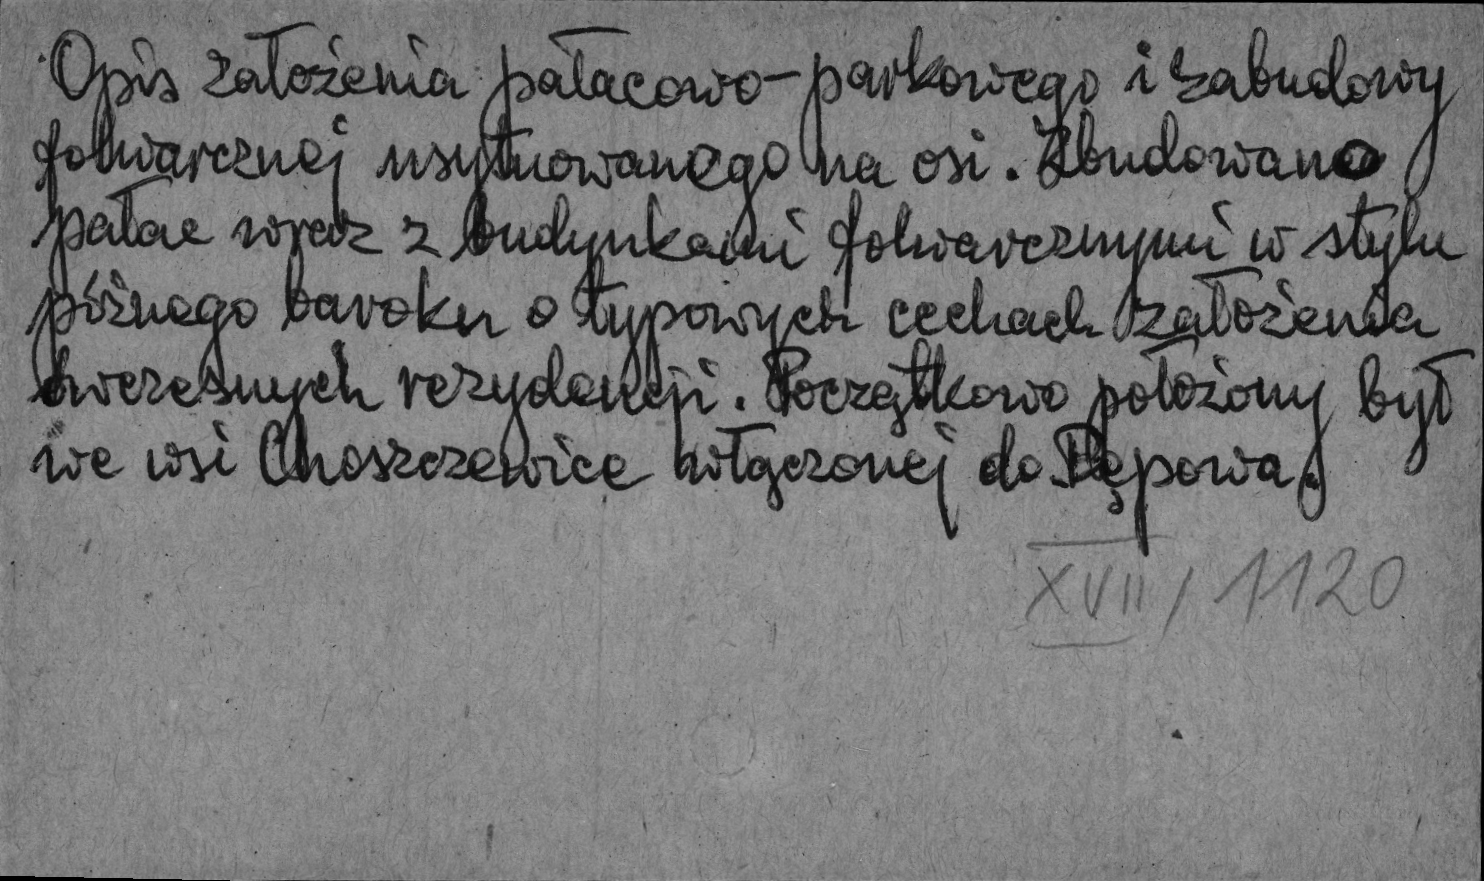 Opis założenia pałacowo-parkowego i zabudowy
folwarcznej usytuowanego na osi. Zbudowano
pałac wraz z budynkami folwarcznymi w stylu
późnego baroku o typowych cechach założenia
ówczesnych rezydencji. Początkowo położony był
we wsi Choszczewice włączonej do Pępowa.
XVII/1120